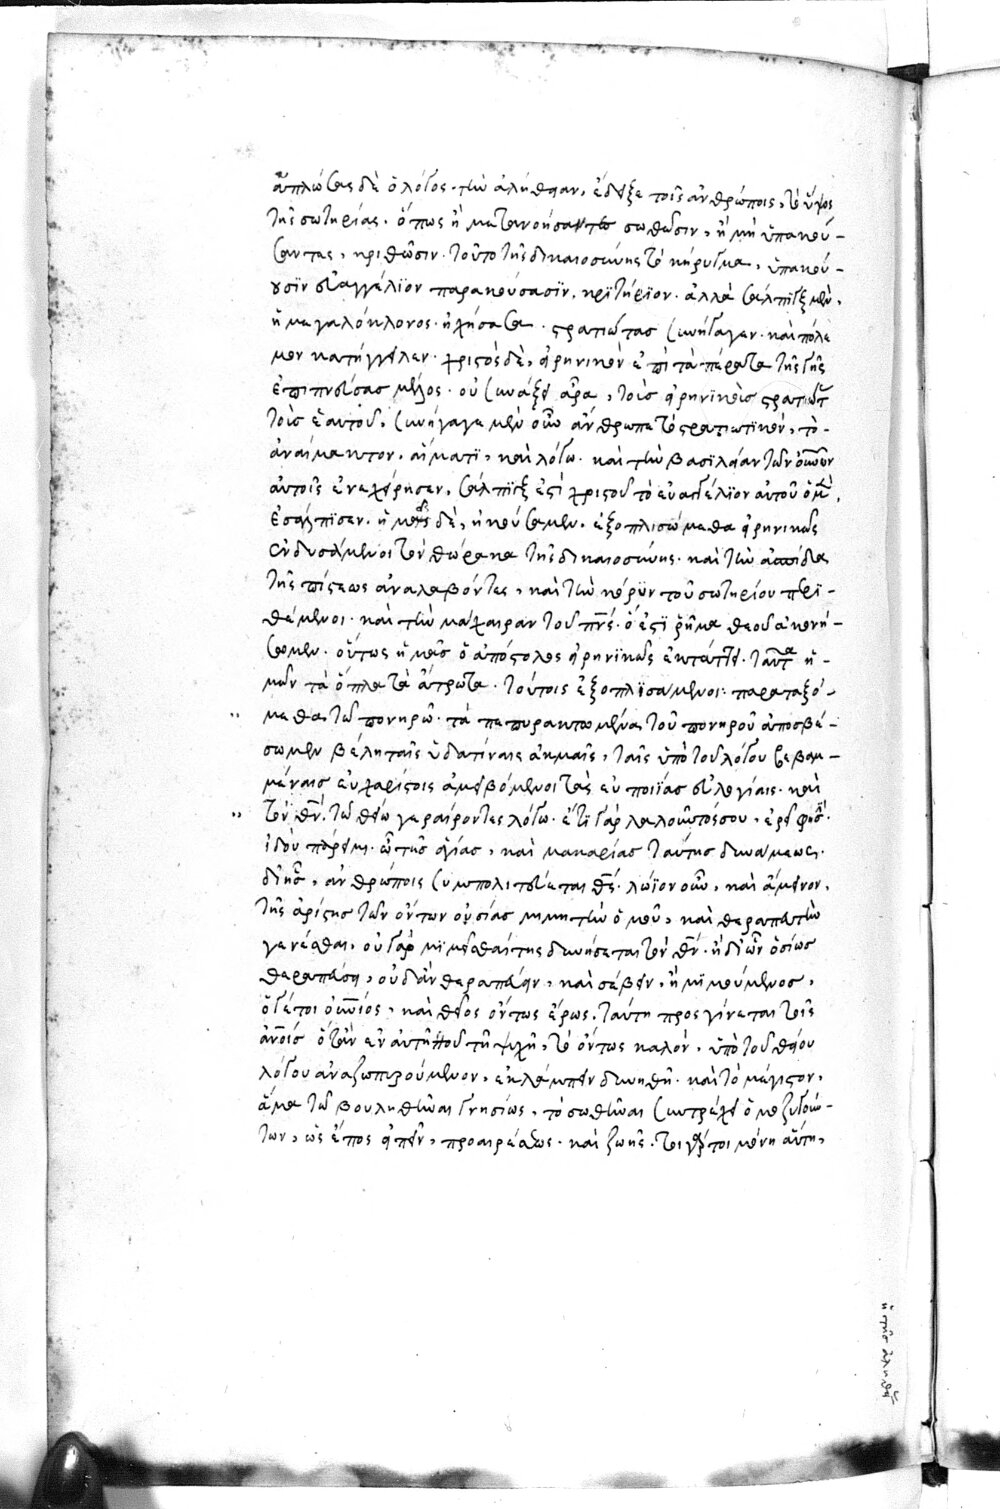 ἁπλώσας δὲ ὁ λόγος· τὴν ἀλήθειαν, ἔδειξε τοῖς ἀνθρώποις, τὸ ὕψος
τῆς σωτηρίας· ὅπως ἢ μετανοήσαντες σωθῶσιν, ἢ μὴ ὑπακού-
σαντες, κριθῶσιν· τοῦτο τῆς δικαιοσύνης τὸ κήρυγμα, ὑπακού-
ουσϊν εὐαγγέλϊον παρακούσασϊν, κρϊτήρϊον· ἀλλὰ σάλπϊγξ μὲν,
ἡ μεγαλόκλονος· ἠχήσασα· στρατιώτας συνήγαγεν· καὶ πόλε
μον κατήγγειλεν· χριστὸς δὲ, εἰρηνικὸν ἐπὶ τὰ πέρατα τῆς γῆς
ἐπιπνεύσας μέλος· οὐ συνάξει ἆρα, τοὺς εἰρηνϊκοὺς στρατιώτ
τοὺς ἑαυτοῦ, συνήγαγε μὲν οὖν ἄνθρωπε τὸ στρατιωτϊκὸν, τὸ
ἀναίμακτον, αἵματϊ, καὶ λόγω· καὶ τὴν βασϊλείαν τῶν οὐνῶν
αὐτοῖς ἐνεχείρησεν, σάλπϊγξ ἐστὶ χριστοῦ τὸ εὐαγγέλϊον αὐτοῦ ὁ μὲν,
ἐσάλπϊσεν· ἡμεῖς δὲ, ἠκούσαμεν, ἐξοπλισώμεθα εἰρηνικῶς
ἐνδυσάμενοι τὸν θώρακα τῆς δικαιοσύνης· καὶ τὴν ἀσπίδα
τῆς πίστεως ἀναλαβόντες, καὶ τὴν κόρϋν τοῦ σωτηρίου περϊ-
θέμενοι· καὶ τὴν μάχαιραν τοῦ πνς· ὅ ἐστϊ ῥῆμα θεοῦ ἀκονή-
σωμεν· οὕτως ἡμᾶς ὁ ἀπόστολος εἰρηνϊκῶς ἐκτάττει· ταῦτα ἡ-
μῶν τὰ ὅπλα τὰ ἄτρωτα· τούτοις ἐξοπλϊσάμενοι· παραταξό-
μεθα τῶ πονηρῶ· τὰ πεπυρακτωμένα τοῦ πονηροῦ ἀποσβέ-
σωμεν βέλη ταῖς ὑδατίναις ἀκμαῖς, ταῖς ὑπὸ τοῦ λόγου βεβαμ-
μέναις εὐχαρίστοις ἀμειβόμενοι τὰς εὐποιϊας εὐλογίαις· καὶ
τὸν θν, τῶ θείω γεραίροντες λόγω· ἔτϊ γὰρ λαλοῦντός σου, ἐρεῖ φησ·
ἰδοὺ πάρειμι· ὢ τῆς ἁγίας, καὶ μακαρίας ταύτης δυνάμεως·
δι ἧς, ἀνθρώποις συμπολιτεύεται θς· λώϊον οὖν, καὶ ἄμεινον,
τῆς ἀρίστης τῶν ὄντων οὐσίας μιμητὴν ὁμοῦ, καὶ θεραπευτὴν
γενέσθαι, οὐ γὰρ μϊμεῖσθαί τις δυνήσεται τὸν θν· ἢ δι ὧν ὁσίως
θεραπεύσει, οὐδ ἂν θεραπεύειν, καὶ σέβειν, ἢ μϊμούμενος,
ὅ γέ τοι οὐνιός, καὶ θεῖος ὄντως ἔρως, ταύτη προσγίνεται τοῖς
ἀνοις ὅταν ἐν αὐτῆ που τῆ ψυχῆ, τὸ ὄντως καλὸν, ὑπὸ τοῦ θείου
λόγου ἀναζωπυρούμενον, ἐκλάμπειν δυνηθῆ· καὶ τὸ μέγιστον,
ἅμα τῶ βουληθῆναι γνησίως, τὸ σωθῆναι συντρέχει ὁμοζυγούν-
των, ὡς ἔπος εἰπεῖν, προαιρέσεως· καὶ ζωῆς· τοιγάρτοι μόνη αὕτη,